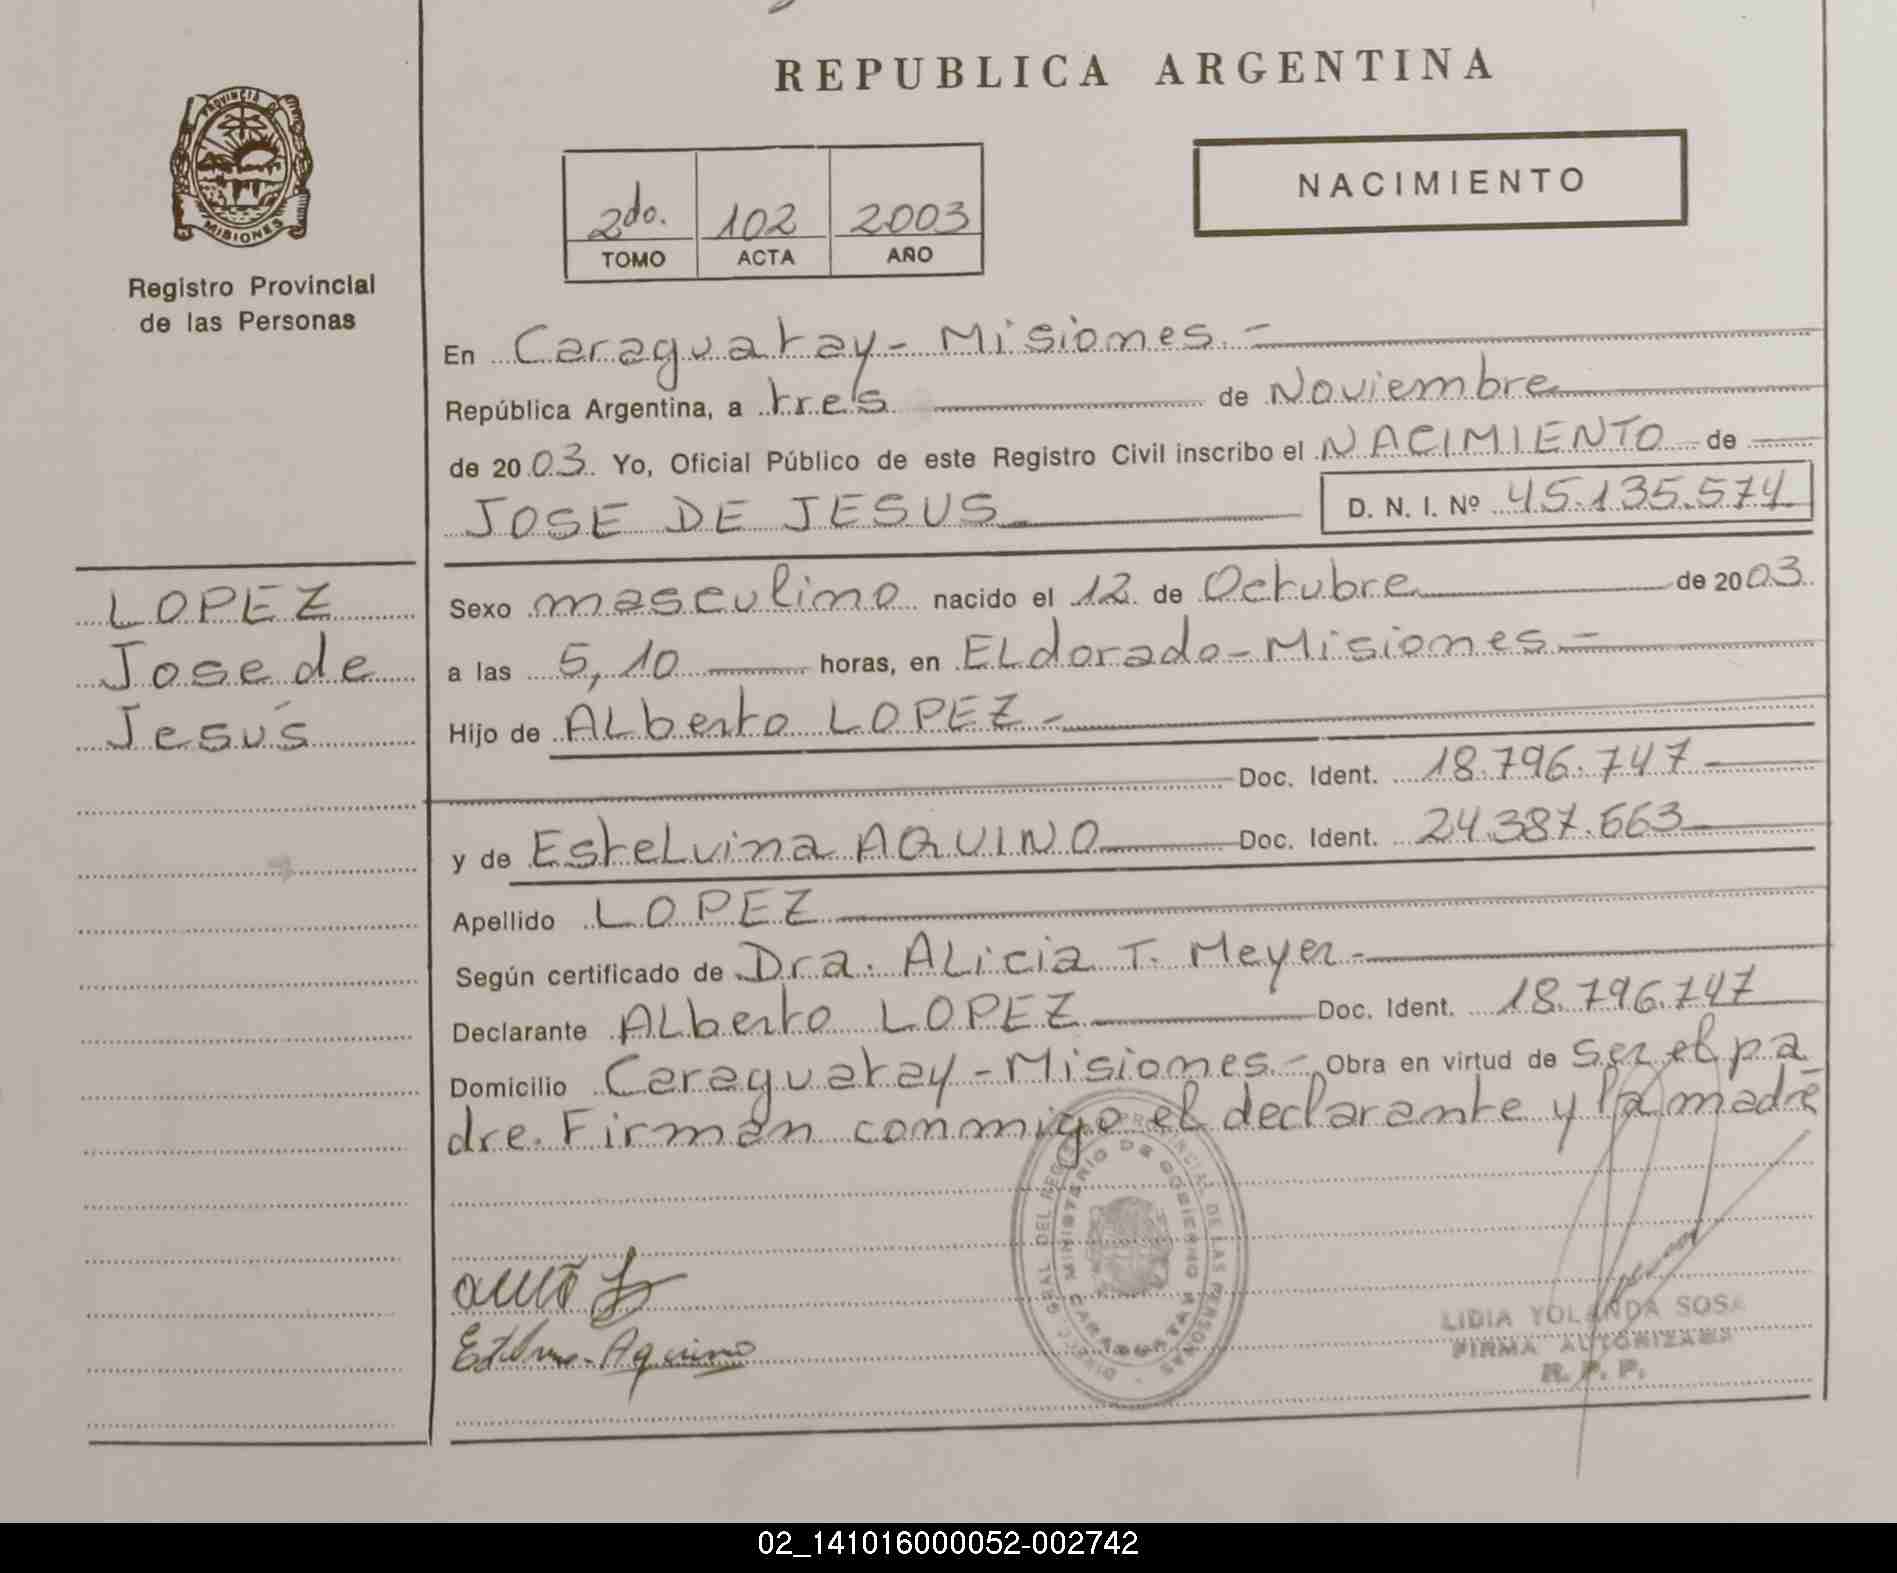 REPUBLICA ARGENTINA
PROVINCIA DE
MISIONES
Registro Provincial
de las Personas
2do. 102 2003
TOMO ACTA AÑO
NACIMIENTO
En Caraguatay - Misiones. -
República Argentina, a tres de Noviembre
de 2003. Yo, Oficial Público de este Registro Civil inscribo el NACIMIENTO de
JOSE DE JESUS D. N. I. Nº 45.135.574
LOPEZ
Jose de
Jesús
Sexo masculino nacido el 12 de Octubre de 2003.
a las 5,10 horas, en ELdorado - Misiones. -
Hijo de ALberto LOPEZ -
Doc. Ident. 18.796.747
y de EsteLvina AQUINO Doc. Ident. 24.387.663
Apellido LOPEZ
Según certificado de Dra. ALicia T. Meyer -
Declarante ALberto LOPEZ Doc. Ident. 18.796.747
Domicilio Caraguatay - Misiones. - Obra en virtud de ser el pa
dre. Firman conmigo el declarante y la madre
DIREC. GRAL. DEL REGISTRO PROVINCIAL DE LAS PERSONAS
MINISTERIO DE GOBIERNO
CARAGUATAY
Aquino
LIDIA YOLANDA SOSA
FIRMA AUTORIZADA
R. P. P.
02_141016000052-002742